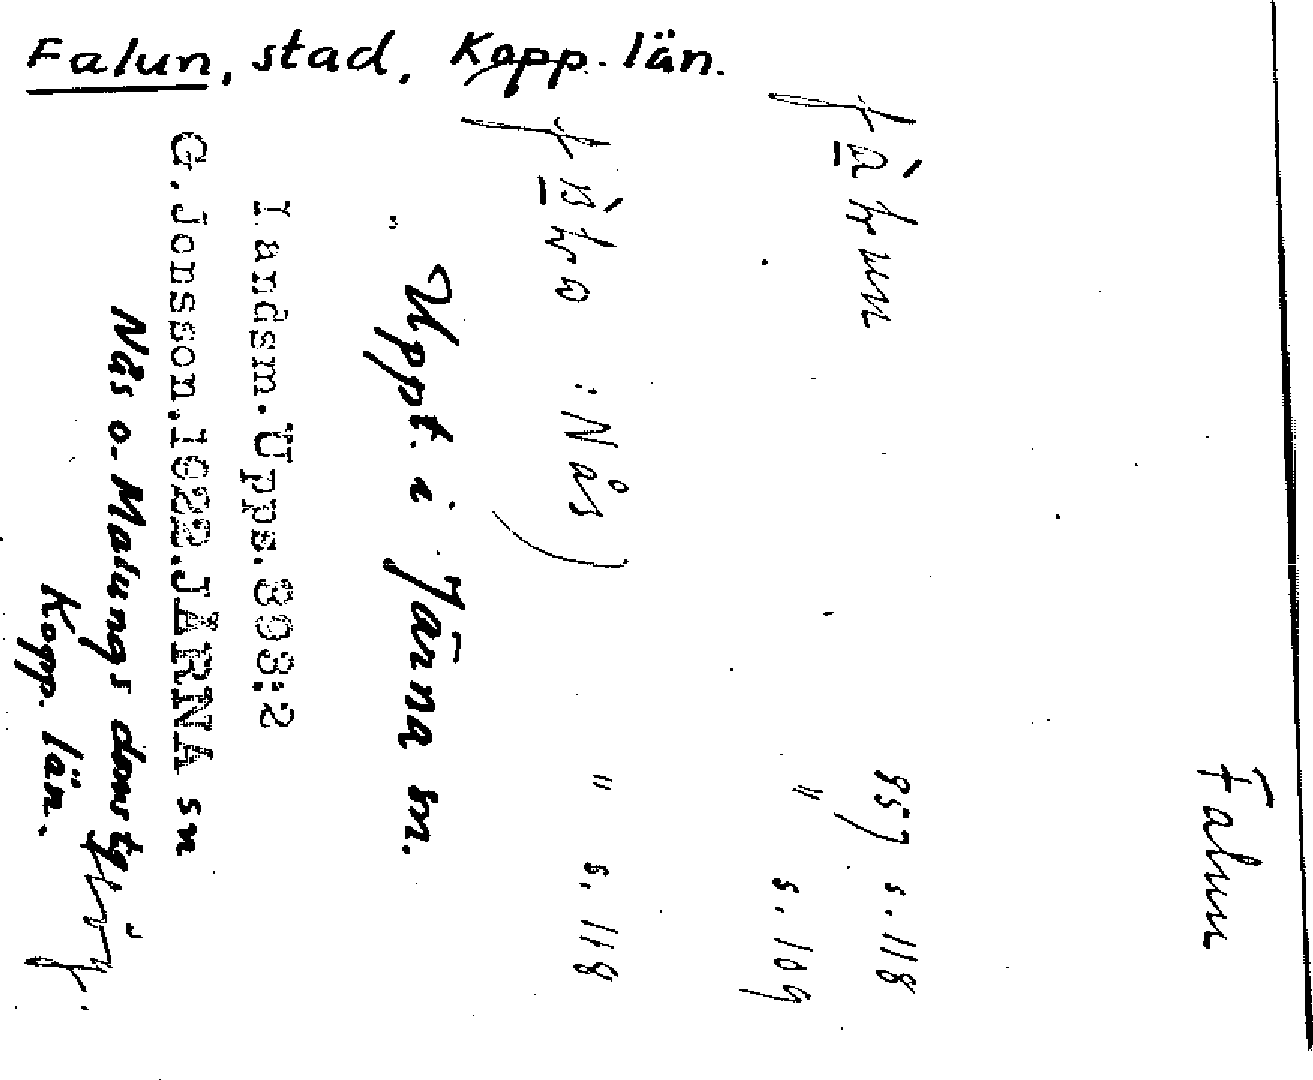 Falun, stad, Kopp. län.
Falun
957 s. 118
" s. 109
" s. 118
: Nås)
Uppt. i Järna sn.
Landsm. Upps. 893:2
G. Jonsson, 1922. JÄRNA sn
Nås o. Malungs doms
Kopp. län.